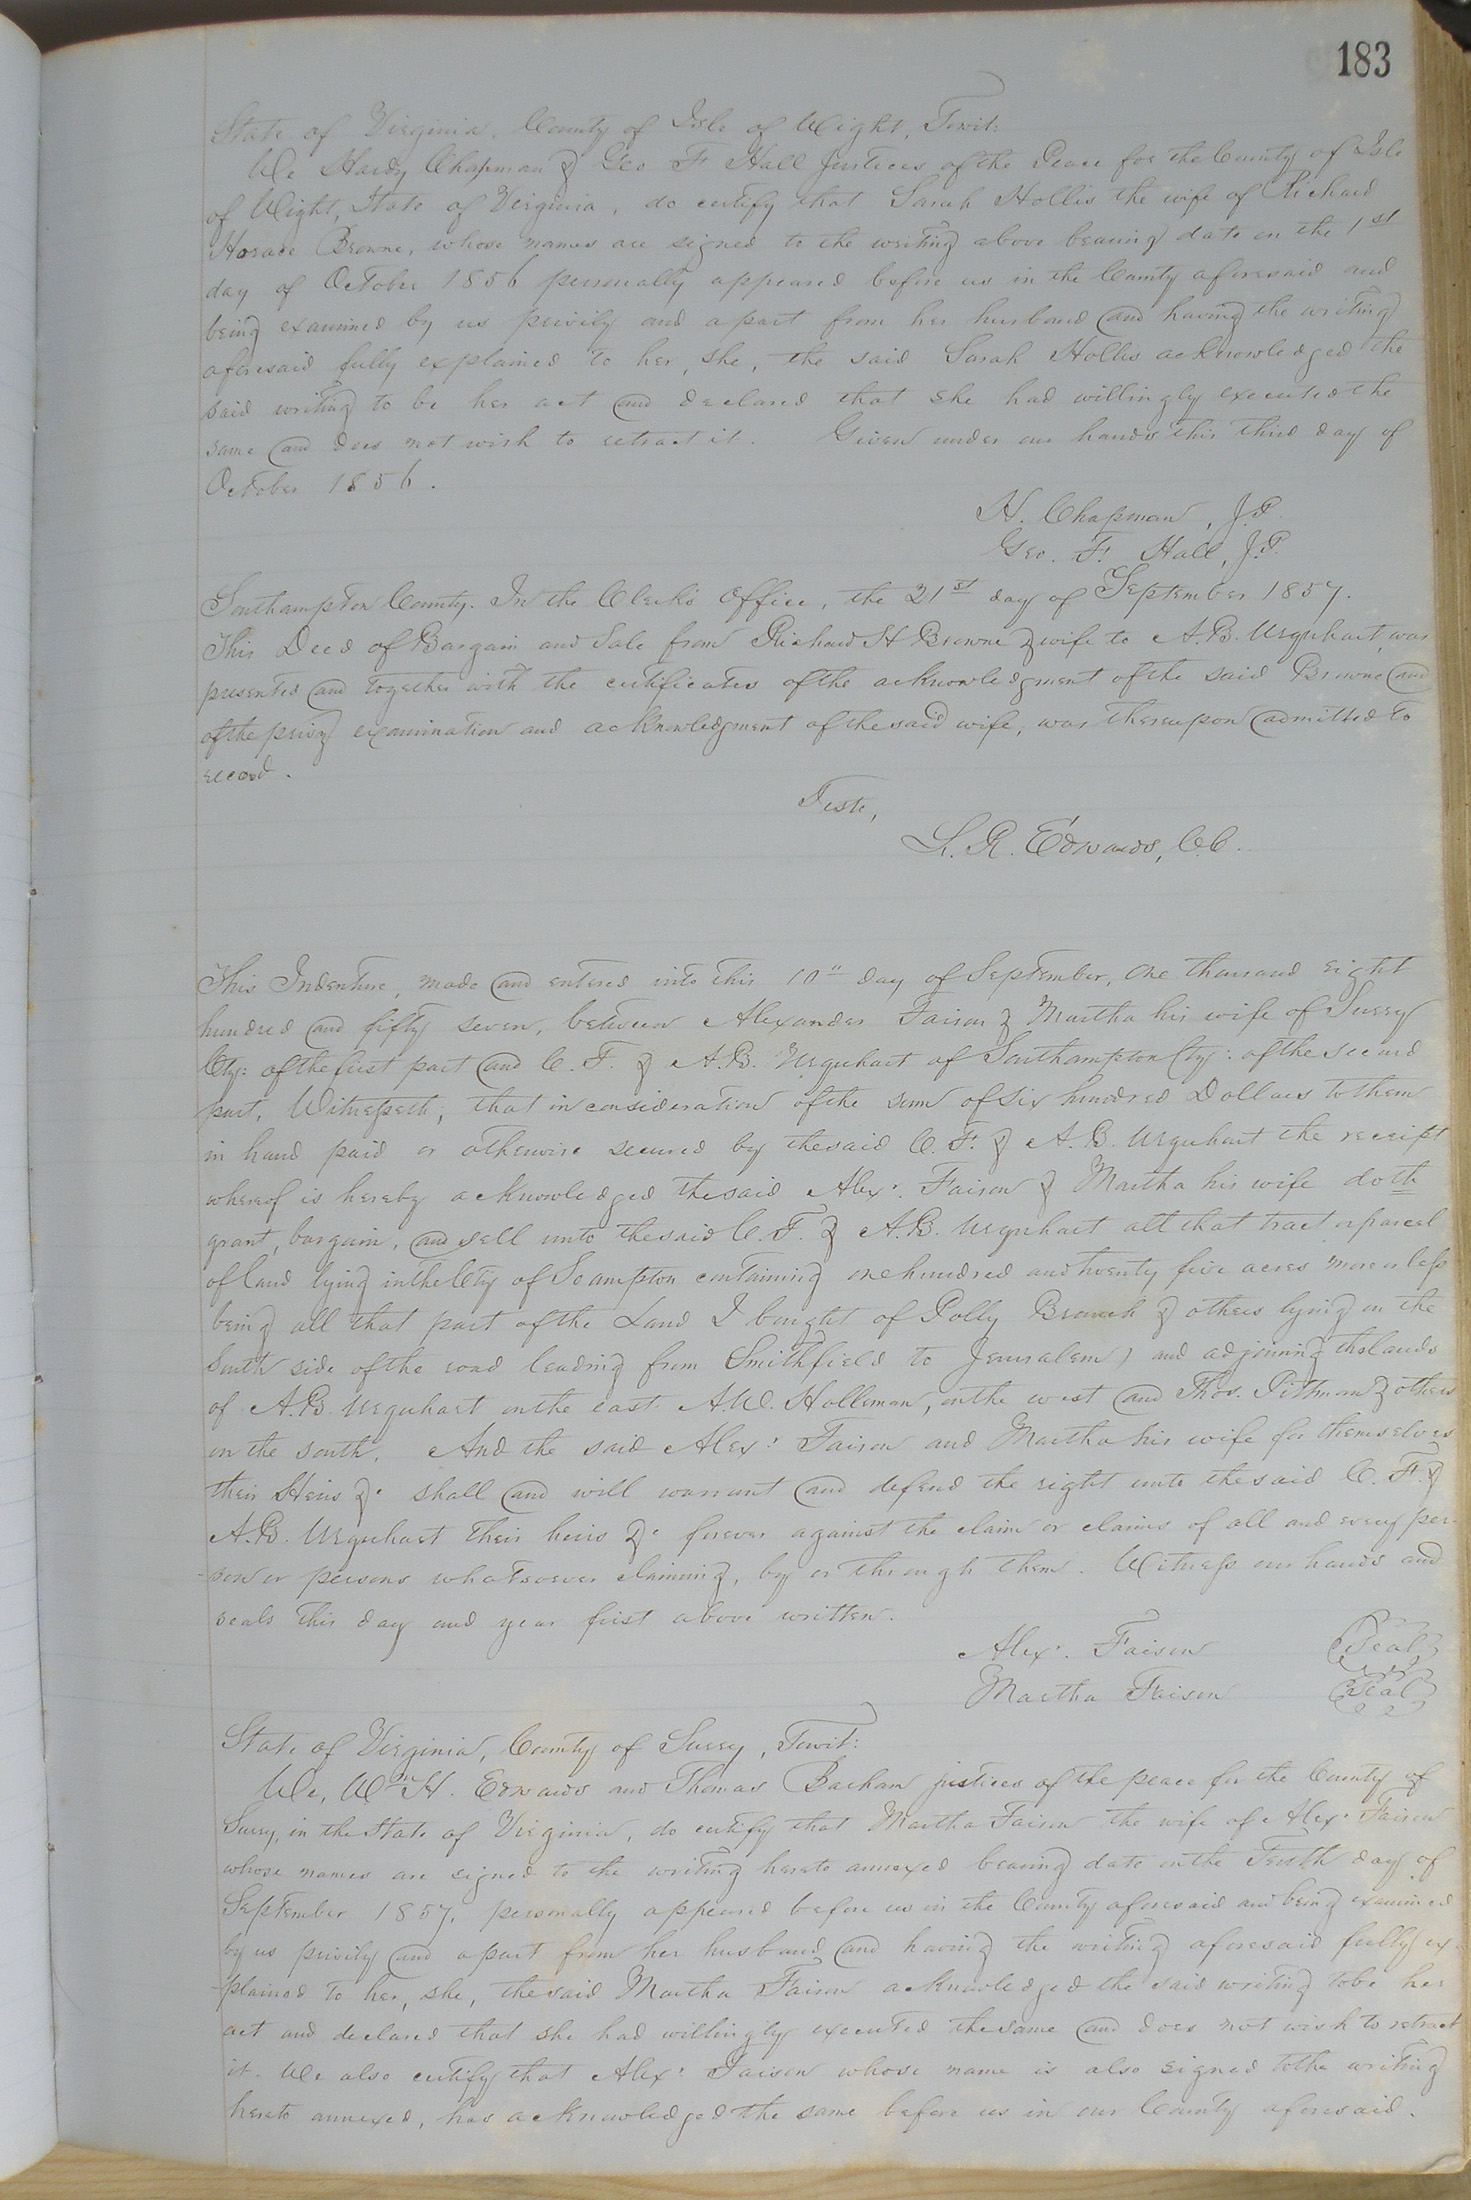 183
State of Virginia. County of Isle of Wight, Towit:
We Hardy Chapman & Geo F Hall Justices of the Peace for the County of Isle
of Wight, State of Virginia, do certify that Sarah Hollis the wife of Richard
Horace Browne, whose names are signed to the writing above bearing date on the 1st
day of October 1856 personally appeared before us in the County aforesaid and
being examined by us privily and apart from her husband and having the writing
aforesaid fully explained to her, she, the said Sarah Hollis acknowledged the
said writing to be her act and declared that she had willingly executed the
same and does not wish to retract it. Given under our hands this third day of
October 1856.
H. Chapman, J.P.
Geo. F. Hall, J.P.
Southampton County. In the Clerk's Office, the 21st day of September 1857.
This Deed of Bargain and Sale from Richard H Browne & wife to A.B. Urquhart, was
presented and together with the certificates of the acknowledgment of the said Browne and
of the privy examination and acknowledgment of the said wife, was thereupon admitted to
record.
Teste,
L. R. Edwards, C.C.
This Indenture, made and entered into this 10" day of September, One thousand eight
hundred and fifty seven, between Alexander Faison & Martha his wife of Surry
Cty: of the first part and C. F. & A.B. Urquhart of Southampton Cty: of the second
part, Witnesseth, that in consideration of the sum of six hundred Dollars to them
in hand paid or otherwise secured by the said C. F. & A. B. Urquhart the receipt
whereof is hereby acknowledged the said Alexr. Faison & Martha his wife doth
grant, bargain, and sell unto the said C. F. & A.B. Urquhart all that tract or parcel
of land lying in the Cty of Soampton containing one hundred and twenty five acres more or less
being all that part of the Land I bought of Polly Branch & others lying on the
South side of the road leading from Smithfield to Jerusalem, and adjoining the lands
of A.B. Urquhart on the east A.W. Holleman, on the west and Thos. Pittman & others
on the south. And the said Alexr Faison and Martha his wife for themselves
their Heirs &c shall and will warrant and defend the right unto the said C. F. &
A.B. Urquhart their heirs &c forever against the claim or claims of all and every per-
-son or persons whatsoever claiming, by or through them. Witness our hands and
seals this day and year first above written.
Alexr. Faison Seal
Martha Faison Seal
State of Virginia, County of Surry, Towit:
We, Wm H. Edwards and Thomas Bacham justices of the peace for the County of
Surry, in the State of Virginia, do certify that Martha Faison the wife of Alexr Faison
whose names are signed to the writing hereto annexed bearing date on the Tenth day of
September 1857, personally appeared before us in the County aforesaid and being examined
by us privily and apart from her husband and having the writing aforesaid fully ex-
-plained to her, she, the said Martha Faison acknowledged the said writing to be her
act and declared that she had willingly executed the same and does not wish to retract
it. We also certify that Alexr Faison whose name is also signed to the writing
hereto annexed, has acknowledged the same before us in our County aforesaid.